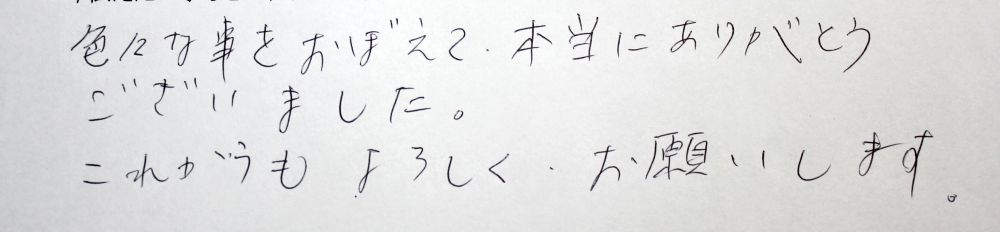 色々な事をおぼえて、本当にありがとう
ございました。
これがうも よろしく、お願いします。